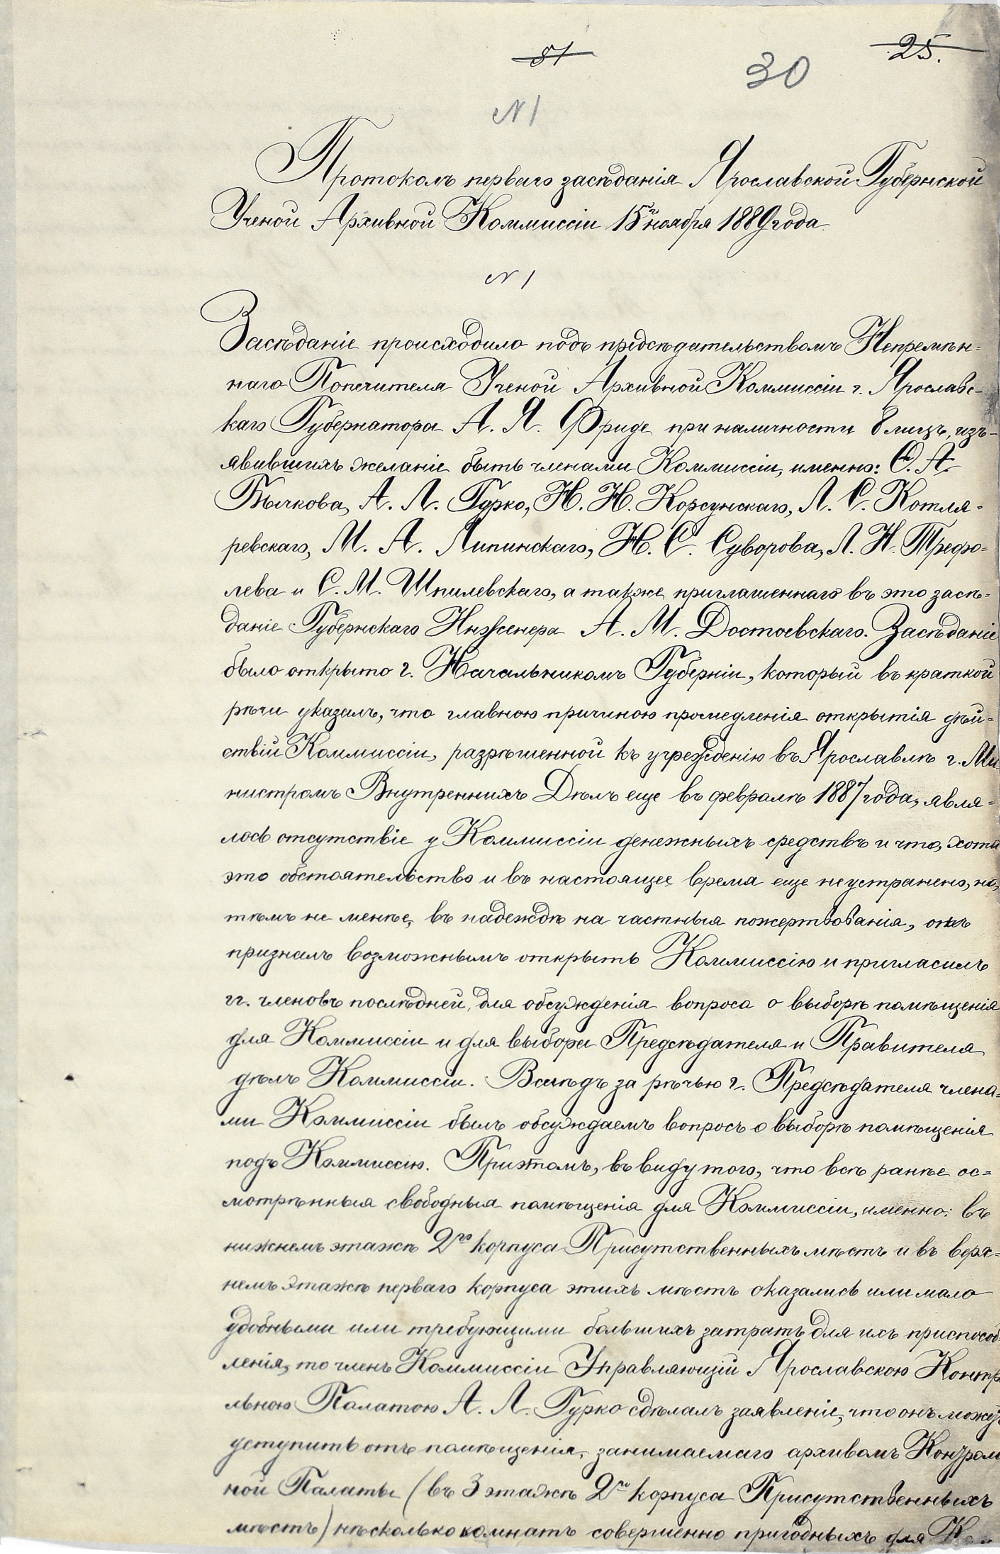 51
30
25.
N 1
Протоколъ перваго засѣданія Ярославской Губернской
Ученой Архивной Коммиссіи 15го ноября 1889 года.
N 1
Засѣданіе происходило подъ предсѣдательствомъ Непремѣн-
наго Попечителя Ученой Архивной Коммиссіи г. Ярославс-
каго Губернатора А. Я. Фриде при наличности 8 лицъ, изъ-
явившихъ желаніе быть членами Коммиссіи, именно: О. А.
Бычкова, А. Л. Гурко, Н. Н. Корсунскаго, Л. С. Котля-
ревскаго, М. А. Липинскаго, Н. С. Суворова, Л. Н. Трефо-
лева и С. М. Шпилевскаго, а также приглашеннаго въ это засѣ-
даніе Губернскаго Инженера А. М. Достоевскаго. Засѣданіе
было открыто г. Начальникомъ Губерніи, который въ краткой
рѣчи указалъ, что главною причиною промедленія открытія дѣй-
ствій Коммиссіи, разрѣшенной къ учрежденію въ Ярославлѣ г. Ми
нистромъ Внутреннихъ Дѣлъ еще въ февралѣ 1887 года, явля-
лось отсутствіе у Коммиссіи денежныхъ средствъ и что, хотя
это обстоятельство и въ настоящее время еще не устранено, но,
тѣмъ не менѣе, въ надеждѣ на частныя пожертвованія, онъ
призналъ возможнымъ открыть Коммиссію и пригласилъ
гг. членовъ послѣдней, для обсужденія вопроса о выборѣ помѣщенія
для Коммиссіи и для выбора Предсѣдателя и Правителя
дѣлъ Коммиссіи. Вслѣдъ за рѣчью г. Предсѣдателя члена-
ми Коммиссіи былъ обсуждаемъ вопросъ о выборѣ помѣщенія
подъ Коммиссію. Притомъ, въ виду того, что всѣ ранѣе ос-
мотрѣнныя свободныя помѣщенія для Коммиссіи, именно: въ
нижнемъ этажѣ 2го корпуса Присутственныхъ мѣстъ и въ верх-
немъ этажѣ перваго корпуса этихъ мѣстъ оказались или мало
удобными или требующими большихъ затратъ для ихъ приспособ
ленія, то членъ Коммиссіи Управляющій Ярославскою Контр
льною Палатою А. Л. Гурко сдѣлалъ заявленіе, что онъ может
уступить отъ помѣщенія, занимаемаго архивомъ Контрол
ной Палаты (въ 3 этажѣ 2го корпуса Присутственныхъ
мѣстъ) нѣсколько комнатъ совершенно пригодныхъ для К